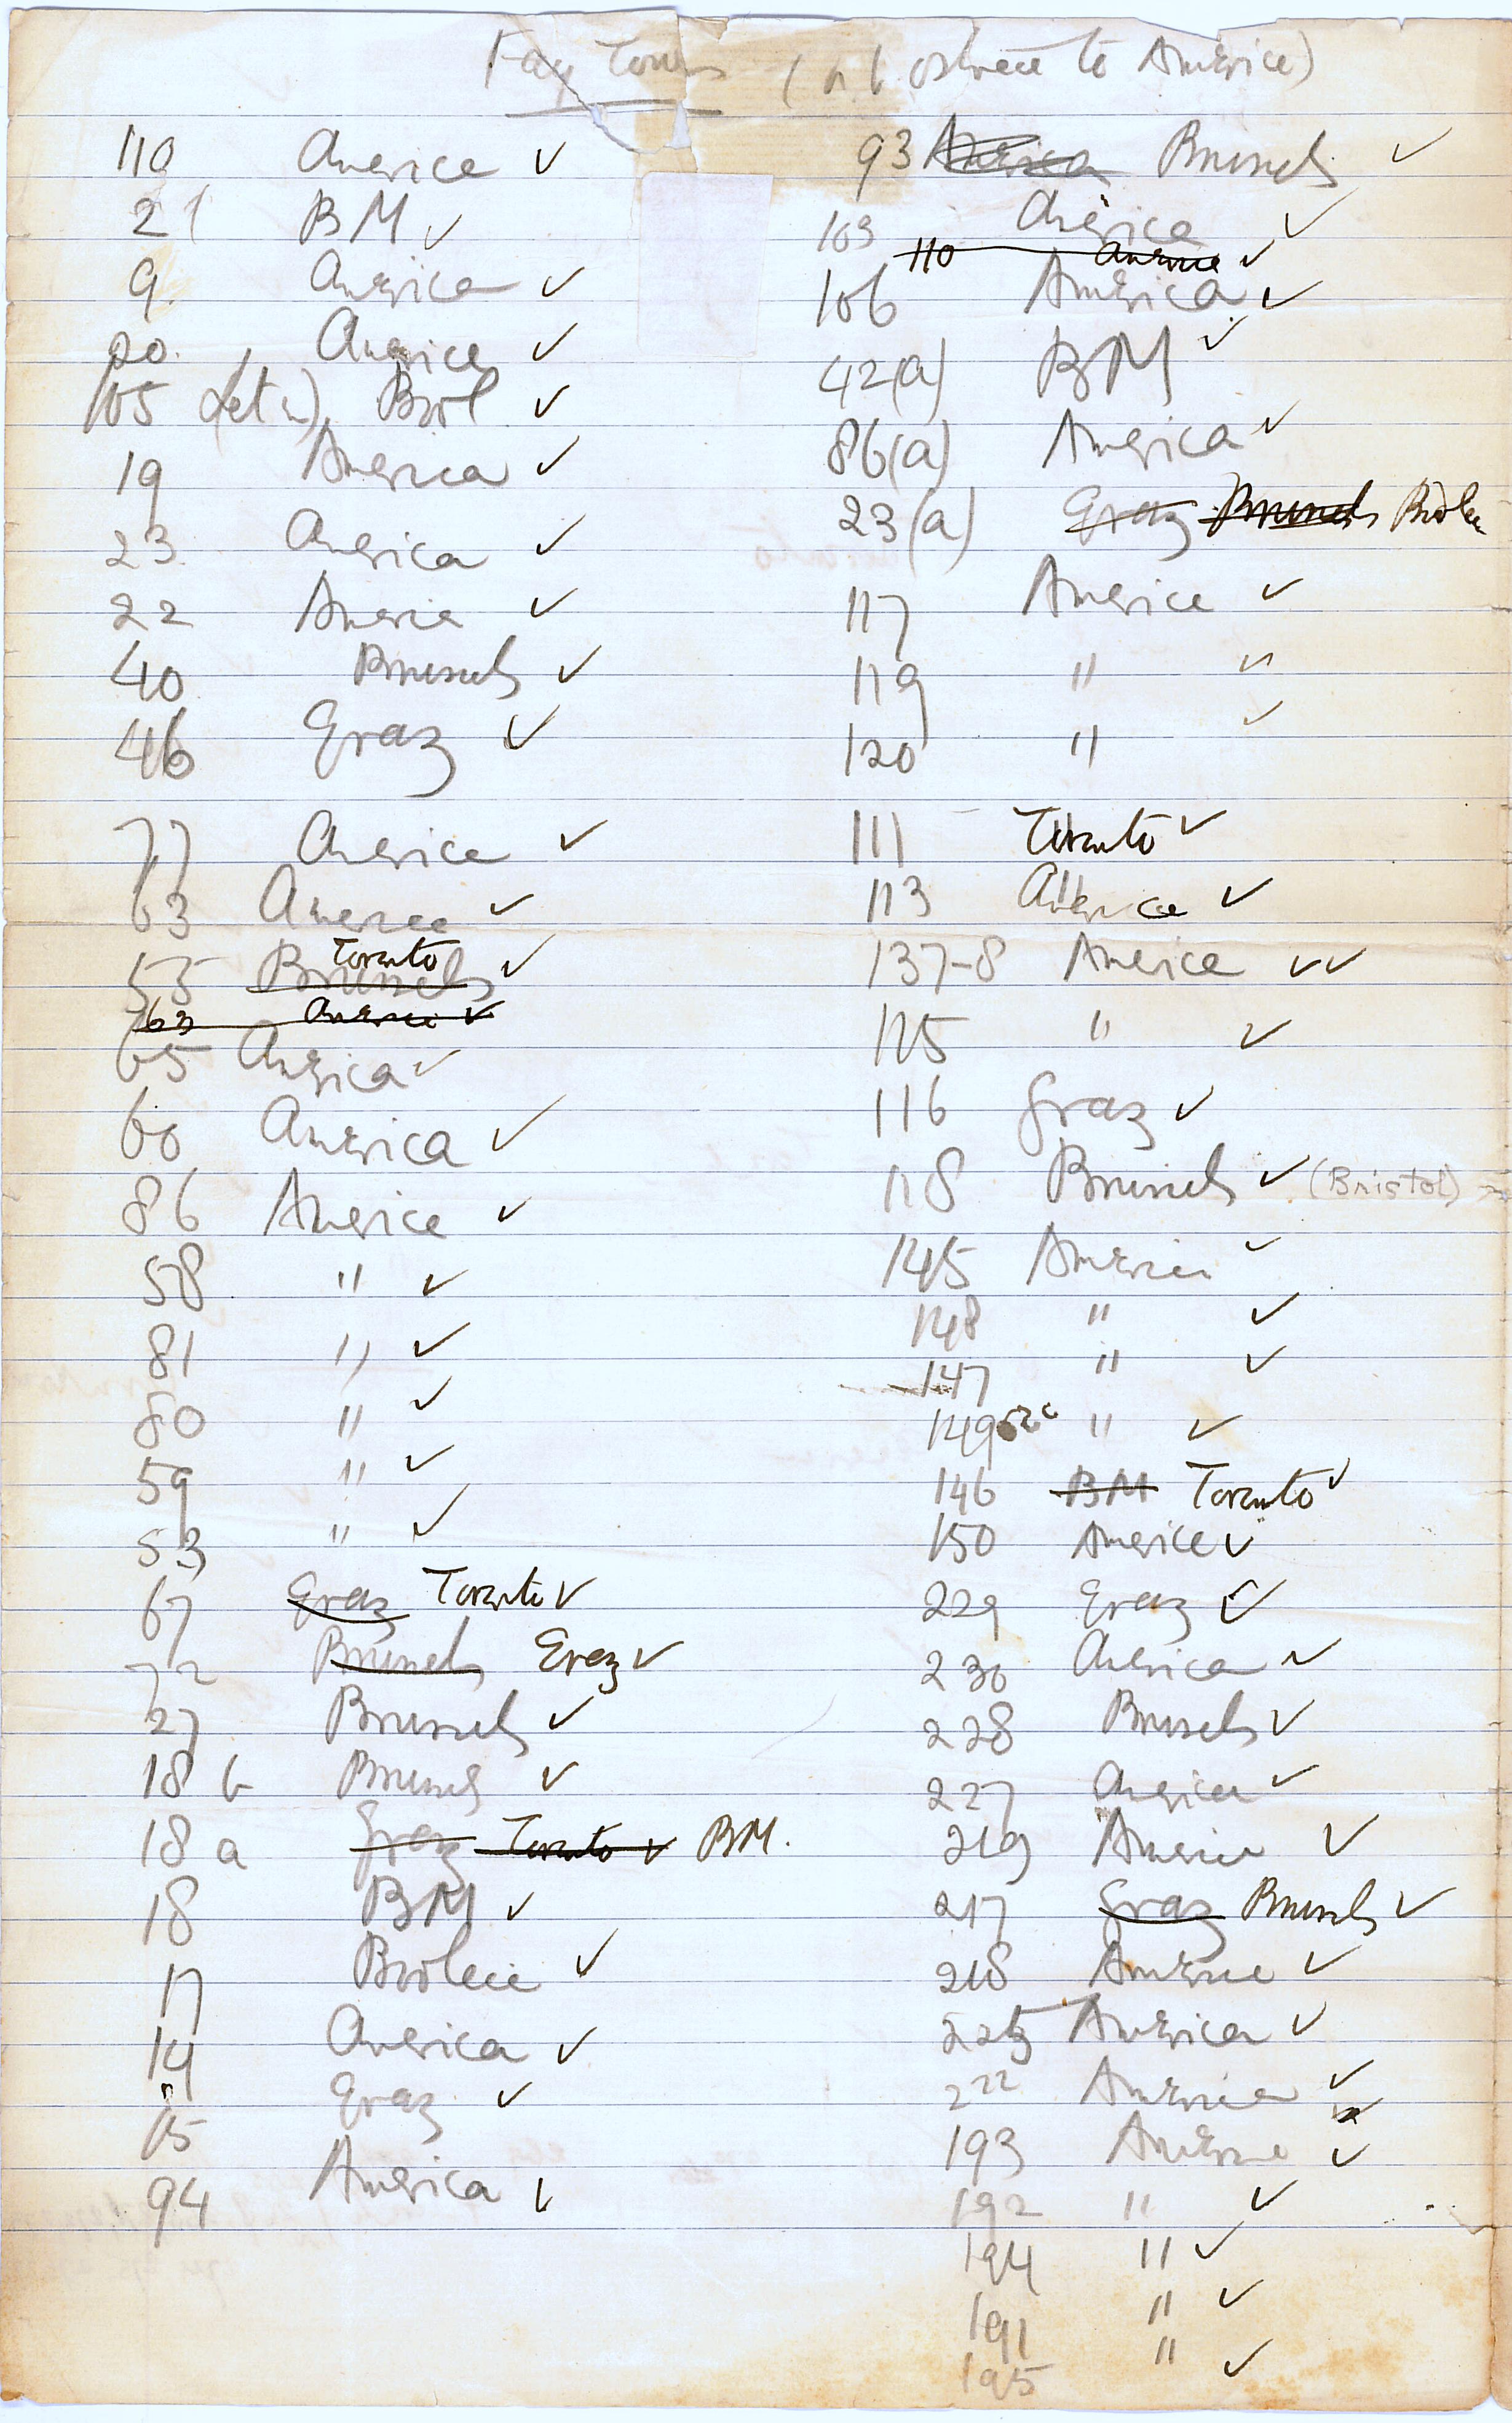 Fay Tombs (n.b. ostrace to America)
110 America ✓
21 BM ✓
9 America ✓
20 America ✓
105 Biol ✓
19 America ✓
23 America ✓
22 America ✓
40 Brussels ✓
46 Graz ✓
77 America ✓
63 America ✓
55 Brussels Toronto ✓
63 America ✓
65 America ✓
60 America ✓
86 America ✓
58 " ✓
81 " ✓
80 " ✓
59 " ✓
53 " ✓
67 Graz Toronto ✓
72 Brussels Graz ✓
27 Brussels ✓
18 b Brussels ✓
18 a Graz Toronto ✓ BM.
18 BM ✓
17 ✓
14 America ✓
15 Graz ✓
94 America ✓
93 America Brussels ✓
103 America ✓
110 America ✓
106 America ✓
42(a) BM ✓
86(a) America ✓
23(a) Graz Brussels
117 America ✓
119 " ✓
120 " ✓
111 Toronto ✓
113 America ✓
137-8 America ✓✓
115 " ✓
116 Graz ✓
118 Brussels ✓ (Bristol)
145 America ✓
148 " ✓
147 " ✓
149 " ✓
146 BM Toronto ✓
150 America ✓
229 Graz ✓
230 America ✓
228 Brussels ✓
227 America ✓
219 America ✓
217 Graz Brussels ✓
218 America ✓
225 America ✓
222 America ✓
193 America ✓
192 " ✓
194 " ✓
191 " ✓
195 " ✓